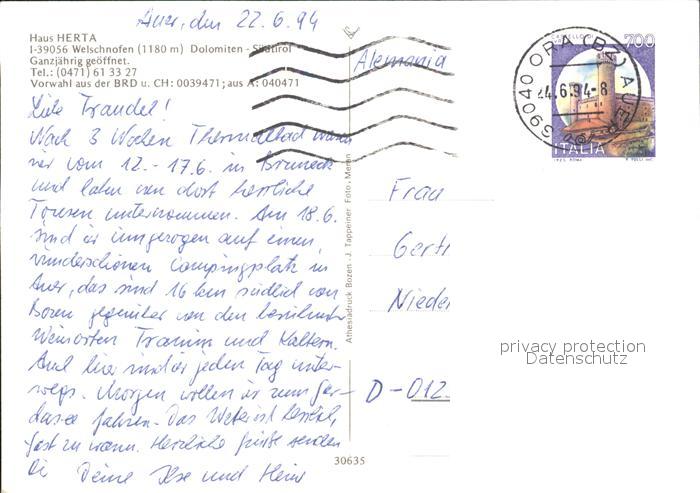 Auer, den 22.6.94
Haus HERTA
I-39056 Welschnofen (1180 m) Dolomiten - Südtirol
Ganzjährig geöffnet.
Tel.: (0471) 61 33 27
Vorwahl aus der BRD u. CH: 0039471; aus A: 040471
Liebe Traudel!
Nach 3 Wochen Thermalbad waren
wir vom 12.-17.6. in Bruneck
und haben von dort herrliche
Touren unternommen. Am 18.6.
sind wir umgezogen auf einen
wunderschönen Campingplatz in
Auer, das sind 16 km südlich von
Bozen gegenüber von den berühmten
Weinorten Tramin und Kaltern.
Auch hier sind wir jeden Tag unter-
wegs. Morgen wollen wir zum Gar-
dasee fahren. Das Wetter ist herrlich,
fast zu warm. Herzliche Grüße senden
Dir Deine Ilse und Heinz
Athesiadruck Bozen - J. Tappeiner Foto - Meran
30635
Alemania
700
ITALIA
39040 ORA (BZ) AUER
24.6.94-8
Frau
Gertr
Nieder
D-012
privacy protection
Datenschutz